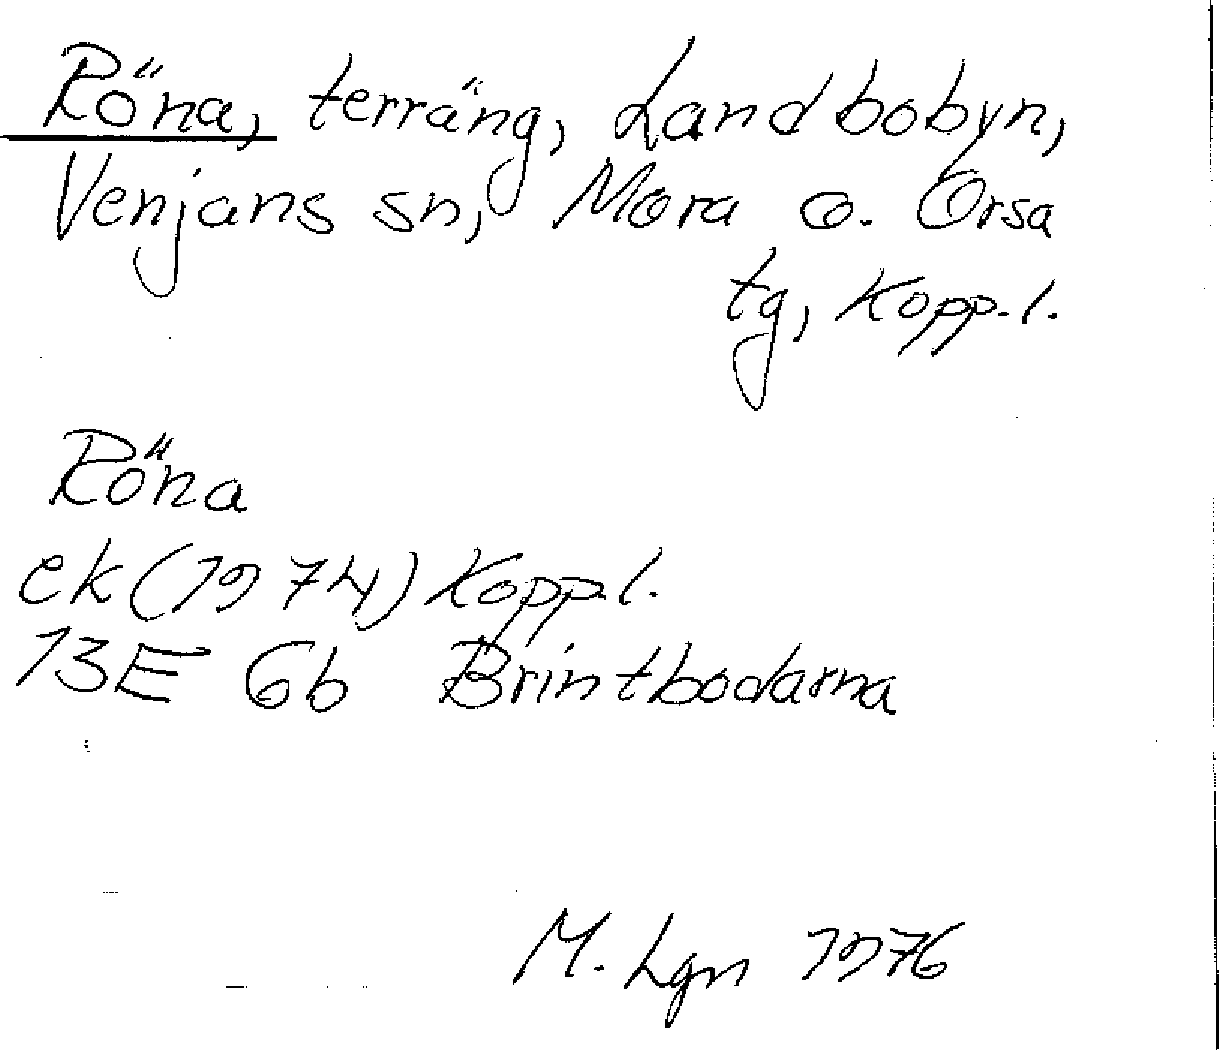 Röna, terräng, Landbobyn,
Venjans sn, Mora o. Orsa
tg, Kopp.l.
Röna
ek (1974) Kopp.l.
13E 6b Brintbodarna
M. Lgn 1976